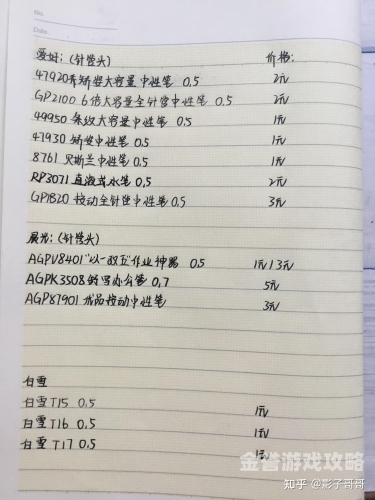 No.
Date.
爱好:(针管头) 价格:
47920秀矫姿大容量中性笔 0.5 2元
GP2100 6倍大容量全针管中性笔 0.5 2元
49950 条纹大容量中性笔 0.5 1元
47930 矫姿中性笔 0.5 1元
8761 贝斯兰中性笔 0.5 1元
RP3071 直液式水笔 0.5 2元
GP1820 按动全针管中性笔 0.5 3元
晨光:(针管头)
AGPV8401"以一双五"作业神器 0.5 1元/3元
AGPK3508 办公笔 0.7 5元
AGP87901 优品按动中性笔 3元
白雪
白雪 T15 0.5 1元
白雪 T16 0.5 1元
白雪 T17 0.5 1元
金誉游戏攻略
知乎 @影子哥哥